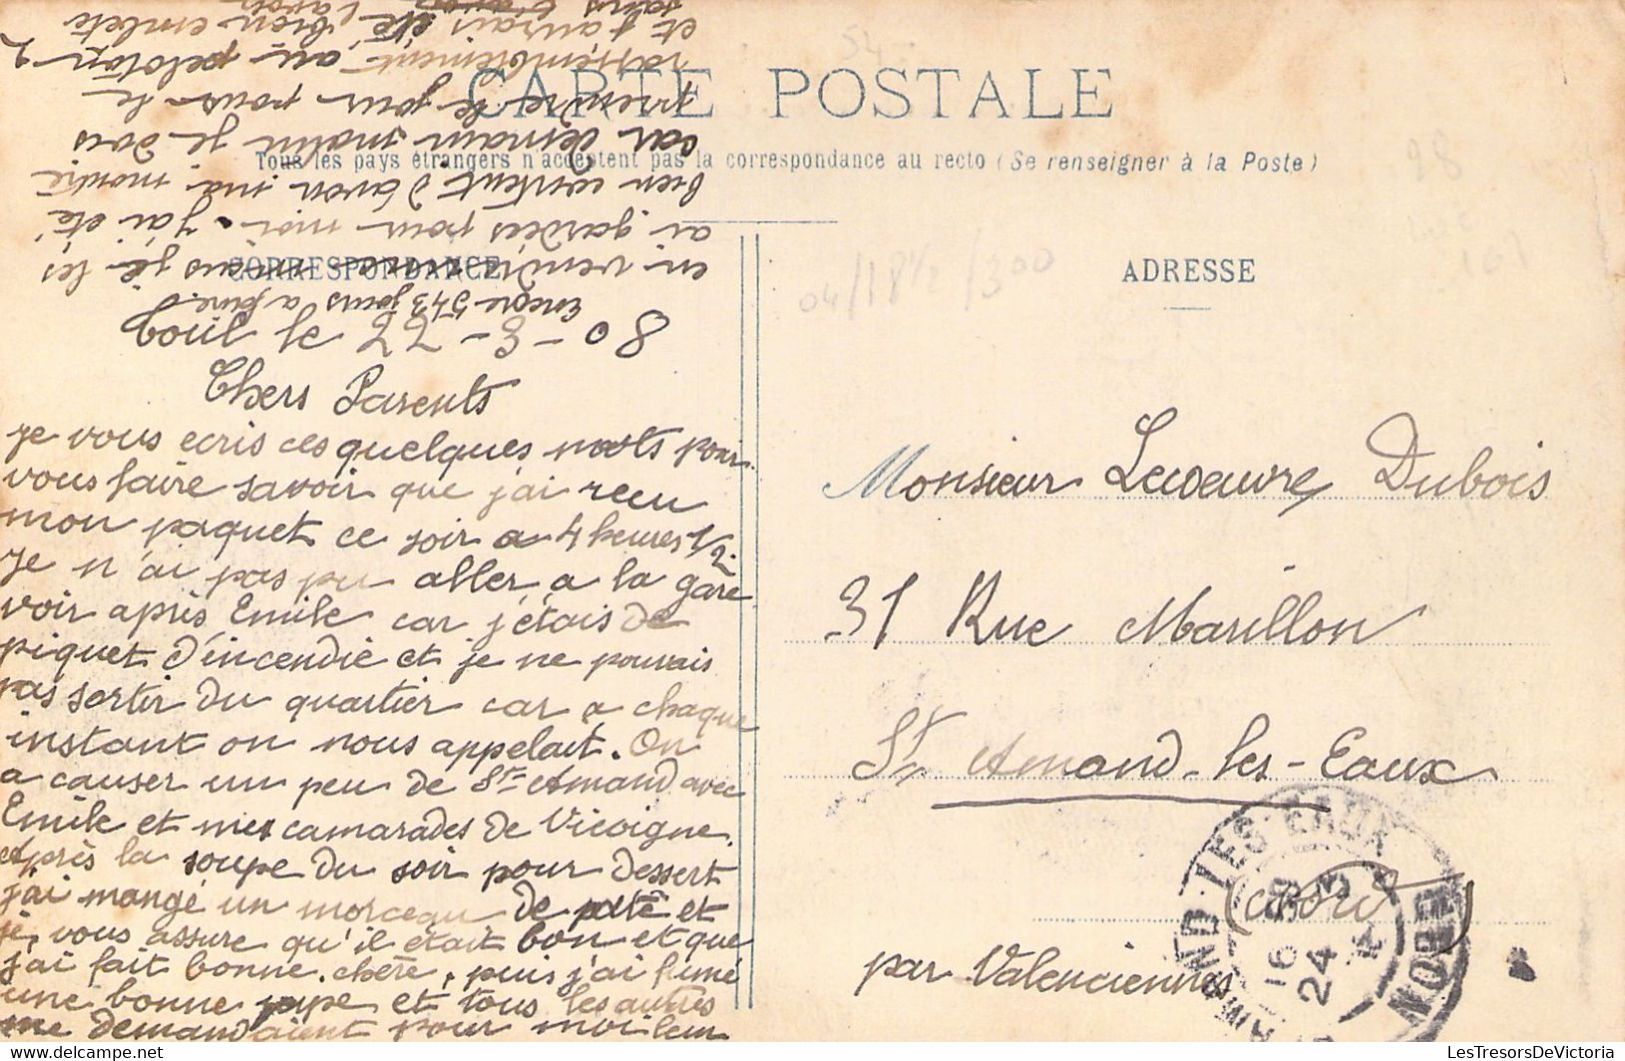 CARTE POSTALE
Tous les pays étrangers n'acceptent pas la correspondance au recto (Se renseigner à la Poste)
CORRESPONDANCE
ADRESSE
Toul le 22-3-08
Chers Parents
je vous ecris ces quelques mots pour
vous faire savoir que j'ai recu
mon paquet ce soir a 4 heures 1/2
Je n'ai pas pu aller a la gare
voir après Emile car j'étais de
piquet d'incendie et je ne pouvais
pas sortir du quartier car a chaque
instant on nous appelait. On
a causer un peu de St Amand avec
Emile et mes camarades de Vicoigne.
Après la soupe du soir pour dessert
j'ai mangé un morceau de paté et
je vous assure qu'il était bon et que
j'ai fait bonne chère, puis j'ai fumé
une bonne pipe et tous les autres
me demandaient pour moi leur
en vendre mais je les
ai gardées pour moi. j'ai été
bien content d'avoir ma montre
car demain matin je dois
prendre le jour pour le
rassemblement au peloton
et j'aurais été bien embeté
sans l'avoir
Encore 543 jours a faire
Monsieur Lecoeuvre Dubois
31 Rue Marillon
St Amand-les-Eaux
(Nord)
par Valenciennes
04/18 1/2/300
54
28
ND-LES-EAUX
NORD
16
24
LesTresorsDeVictoria